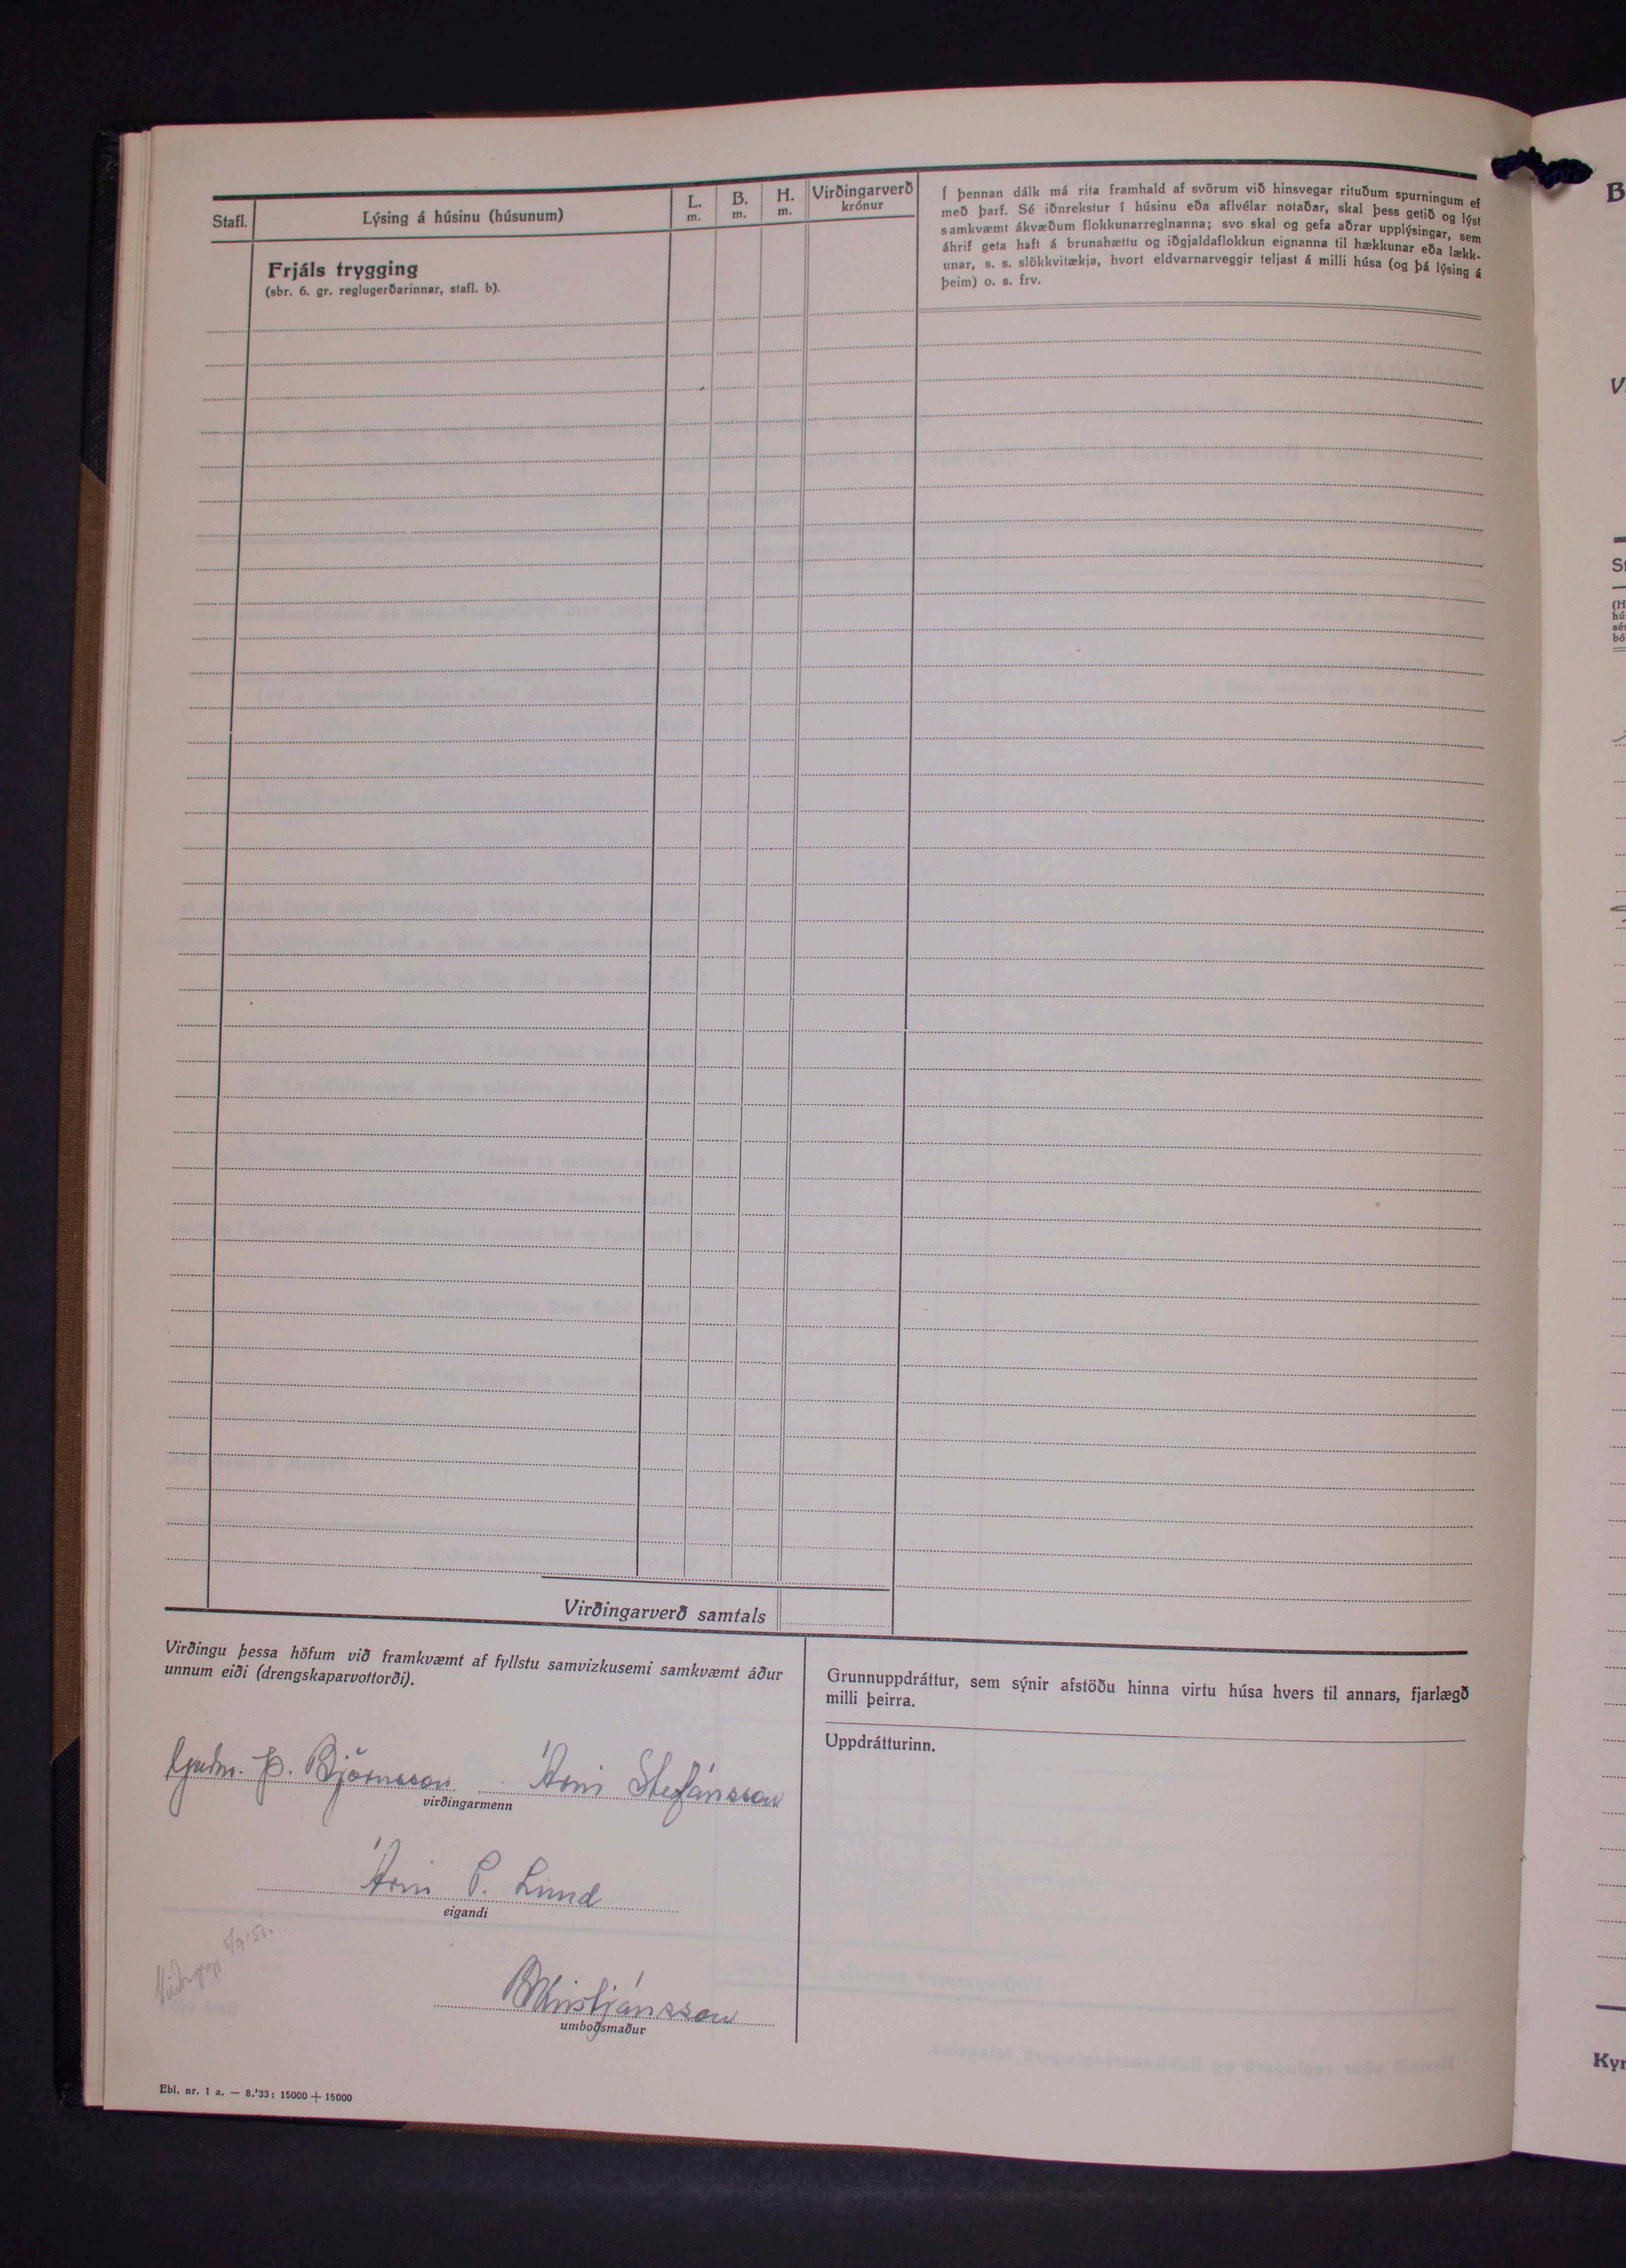 Stafl.
Lýsing á húsinu (húsunum)
L.
m.
B.
m.
H.
m.
Virðingarverð
krónur
Í þennan dálk má rita framhald af svörum við hinsvegar rituðum spurningum ef
með þarf. Sé iðnrekstur í húsinu eða aflvélar notaðar, skal þess getið og lýst
samkvæmt ákvæðum flokkunarreglnanna; svo skal og gefa aðrar upplýsingar, sem
áhrif geta haft á brunahættu og iðgjaldaflokkun eignanna til hækkunar eða lækk-
unar, s. s. slökkvitækja, hvort eldvarnarveggir teljast á milli húsa (og þá lýsing á
þeim) o. s. frv.
Frjáls trygging
(sbr. 6. gr. reglugerðarinnar, stafl. b).
Virðingarverð samtals
Virðingu þessa höfum við framkvæmt af fyllstu samvizkusemi samkvæmt áður
unnum eiði (drengskaparvottorði).
Guðm. Þ. Björnsson Árni Stefánsson
virðingarmenn
Árni P. Lund
eigandi
5/9 '51.
BKristjánsson
umboðsmaður
Ebl. nr. 1 a. — 8.'33: 15000 + 15000
Grunnuppdráttur, sem sýnir afstöðu hinna virtu húsa hvers til annars, fjarlægð
milli þeirra.
Uppdrátturinn.